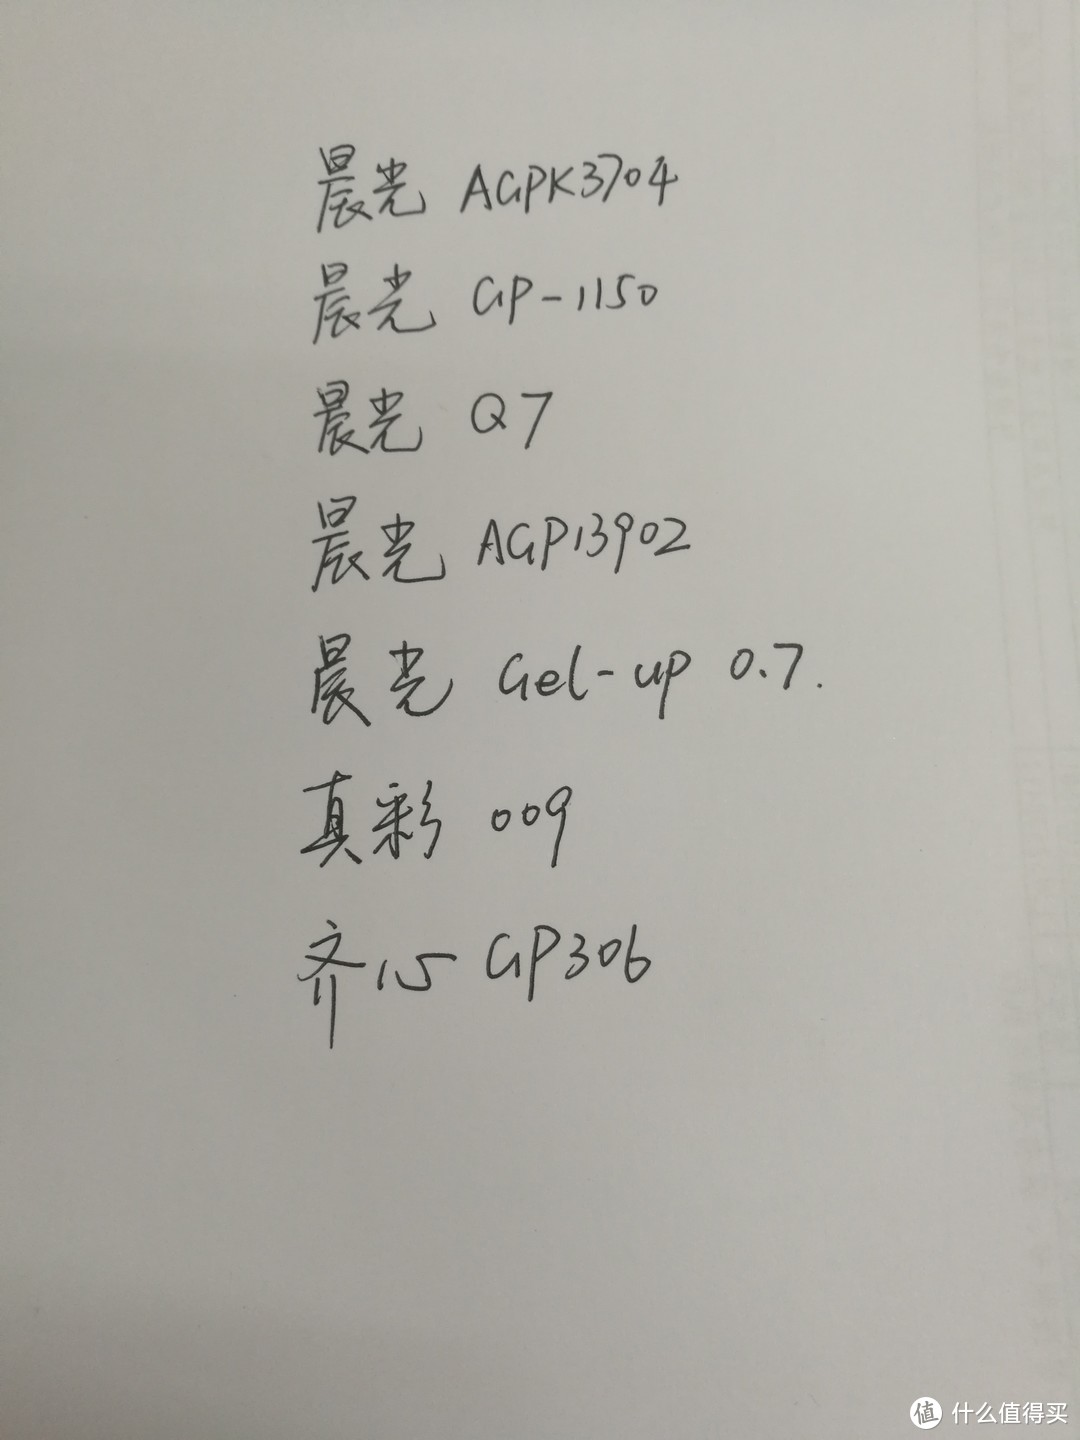 晨光 AGPK3704
晨光 GP-1150
晨光 Q7
晨光 AGP13902
晨光 Gel-up 0.7.
真彩 009
齐心 GP306
值 什么值得买